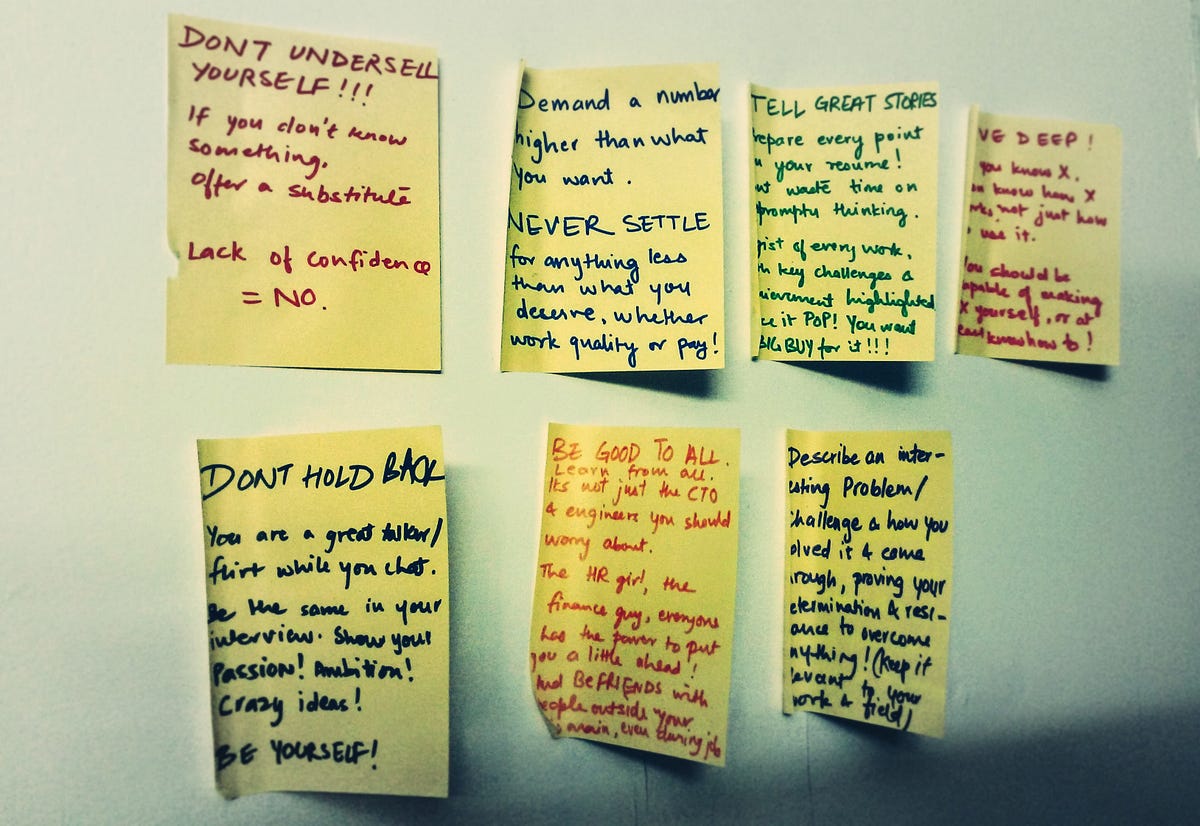 DONT UNDERSELL
YOURSELF!!!
If you don't know
something,
Offer a substitute
Lack of confidence
= NO.
Demand a number
higher than what
you want.
NEVER SETTLE
for anything less
than what you
deserve, whether
work quality or pay!
TELL GREAT STORIES
repare every point
n your resume!
nt waste time on
promptu thinking.
gist of every work,
th key challenges &
hievement highlighted
ke it POP! You want
BIG BUY for it!!!
VE DEEP!
you know X,
ou know how X
rks, not just how
o use it.
You should be
apable of making
X yourself, or at
east know how to!
DONT HOLD BACK
You are a great talker/
flirt while you chat.
Be the same in your
interview. Show your
PASSION! Ambition!
Crazy ideas!
BE YOURSELF!
BE GOOD TO ALL.
Learn from all.
Its not just the CTO
& engineers you should
worry about.
The HR girl, the
finance guy, everyone
has the power to put
you a little ahead!
And BE FRIENDS with
eople outside your
omain, even during job
Describe an inter-
esting Problem/
Challenge & how you
olved it & came
rough, proving your
etermination & resi-
ance to overcome
nything! (Keep it
levant to your
work & field)